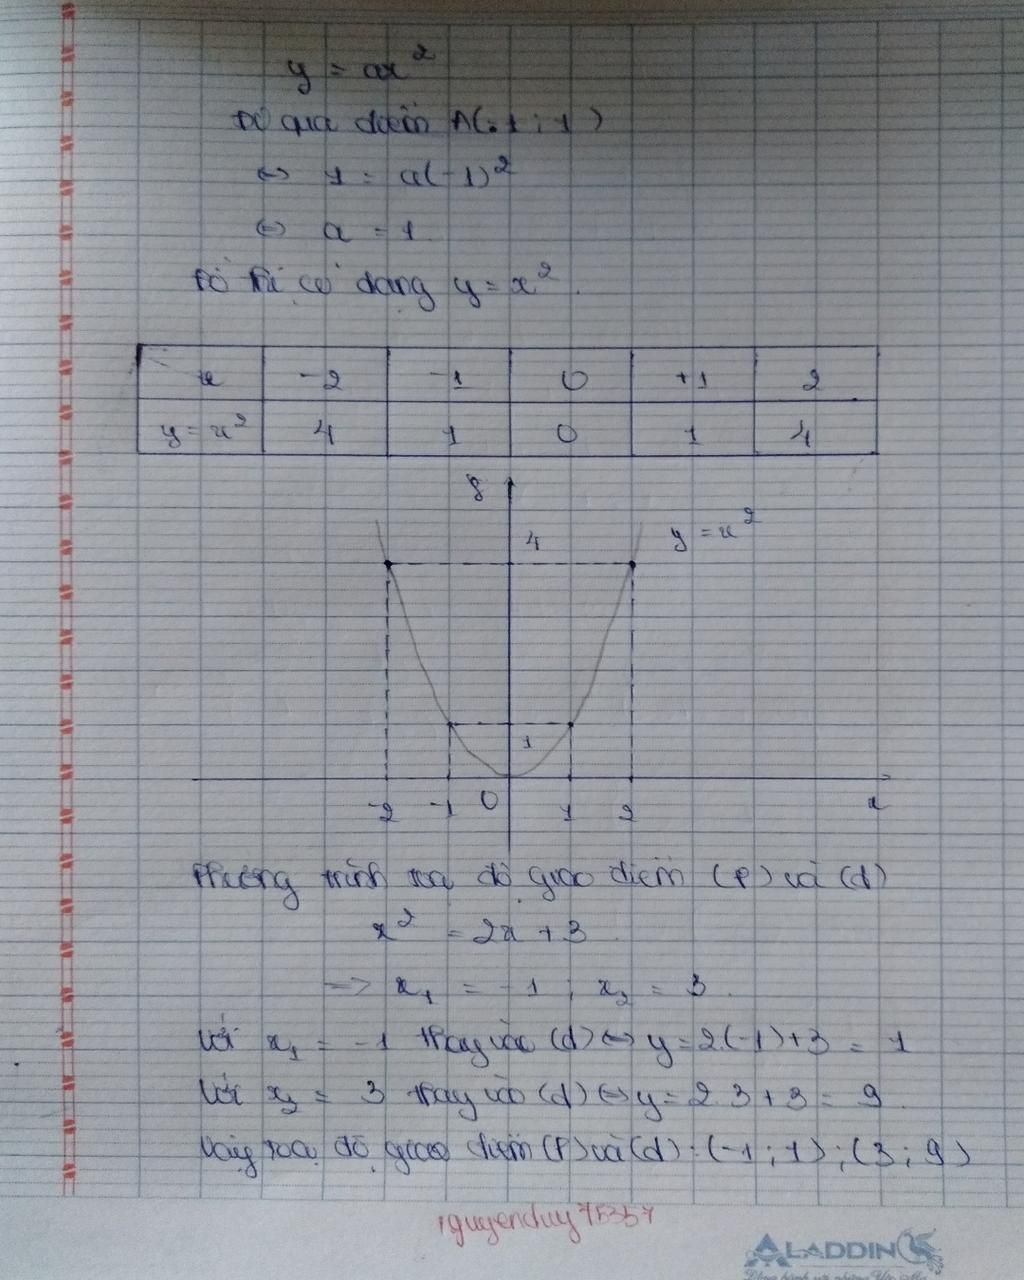 y = ax²
Đồ qua điểm A(-1; 1)
⇔ 1 = a(-1)²
⇔ a = 1
Đồ thị có dạng y = x².
x -2 -1 0 +1 2
y = x² 4 1 0 1 4
y
4 y = x²
1
-2 -1 0 1 2 x
Phương trình toạ độ giao điểm (P) và (d)
x² = 2x + 3
=> x₁ = -1 ; x₂ = 3.
Với x₁ = -1 thay vào (d) ⇔ y = 2.(-1)+3 = 1
Với x₂ = 3 thay vào (d) ⇔ y = 2.3+3 = 9.
Vậy toạ độ giao điểm (P) và (d) : (-1; 1) ; (3; 9)
nguyenduy75357
ALADDIN